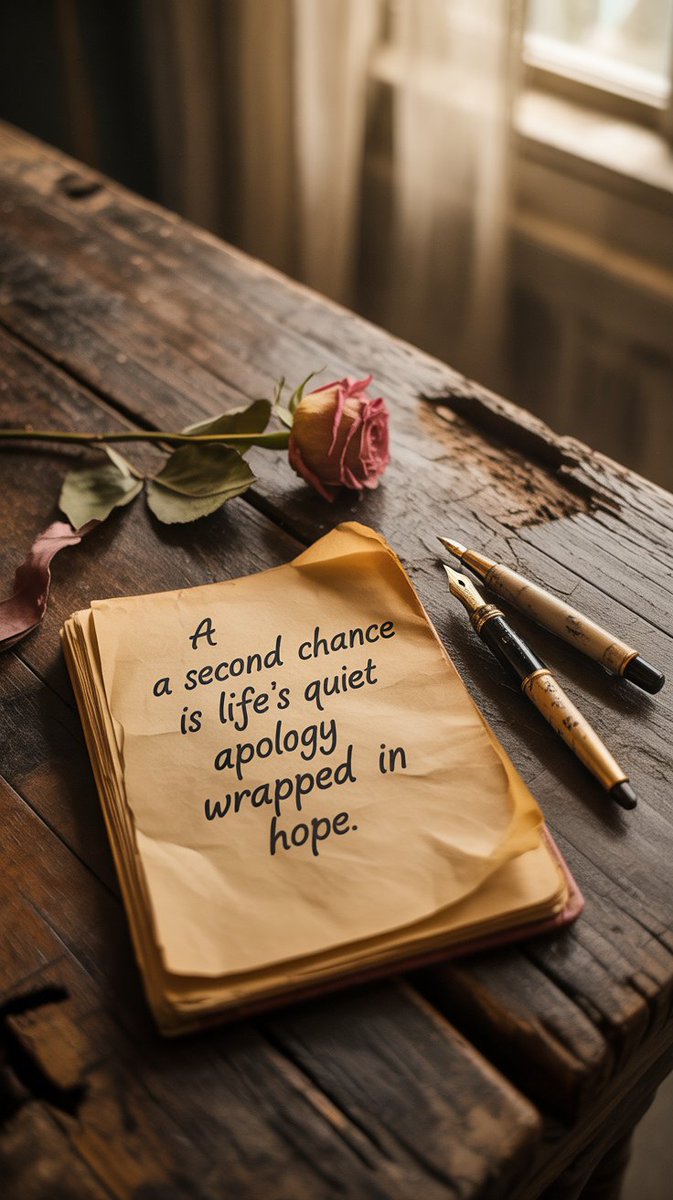 A
a second chance
is life's quiet
apology
wrapped in
hope.